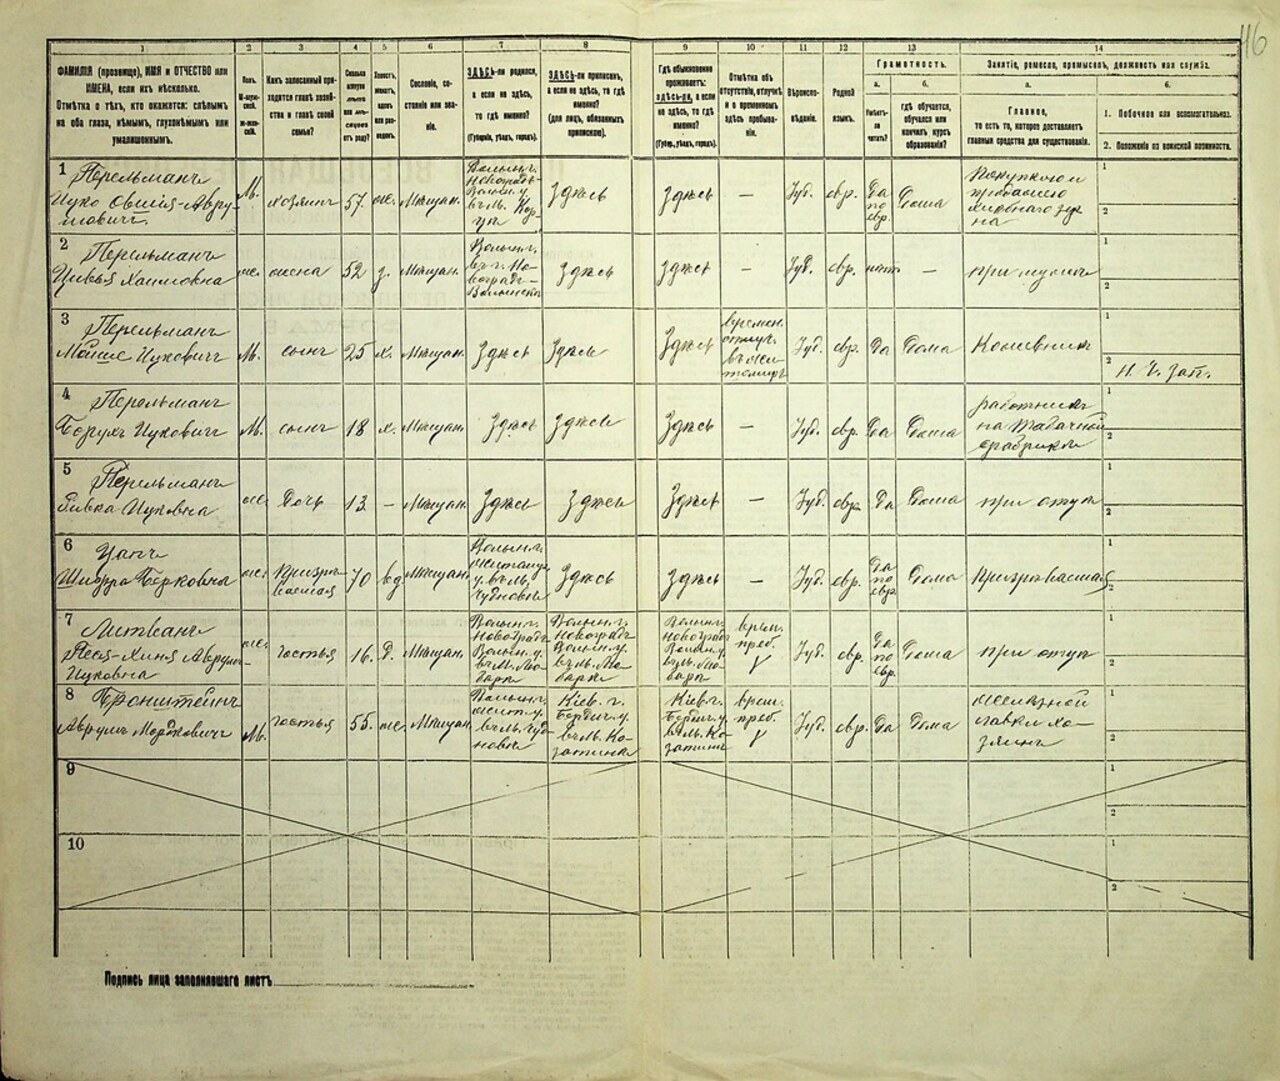 46
1 2 3 4 5 6 7 8 9 10 11 12 13 14
ФАМИЛІЯ (прозвище), ИМЯ и ОТЧЕСТВО или ИМЕНА, если ихъ нѣсколько.
Отмѣтка о тѣхъ, кто окажется: слѣпымъ на оба глаза, нѣмымъ, глухонѣмымъ или умалишеннымъ.
Полъ. М-мужской. ж-женскій.
Какъ записанный приходится главѣ хозяйства и главѣ своей семьи?
Сословіе, состояніе или званіе.
ЗДѢСЬ-ли родился, а если не здѣсь, то гдѣ именно?
(Губернія, уѣздъ, городъ).
ЗДѢСЬ-ли приписанъ, а если не здѣсь, то гдѣ именно?
(для лицъ, обязанныхъ припиской).
Гдѣ обыкновенно проживаетъ: здѣсь-ли, а если не здѣсь, то гдѣ именно?
(Губер., уѣздъ, городъ).
Отмѣтка объ отсутствіи, отлучкѣ и о временномъ здѣсь пребываніи.
Вѣроисповѣданіе.
Родной языкъ.
Грамотность.
а. б.
Умѣетъ-ли читать?
гдѣ обучается, обучался или кончилъ курсъ образованія?
Занятіе, ремесло, промыселъ, должность или служба.
а. б.
Главное,
то есть то, которое доставляетъ главныя средства для существованія.
1. Побочное или вспомогательное.
2. Положеніе по воинской повинности.
1 Перельманъ Ицко Овшія-Аврумовичъ М. хозяинъ 57. же. Мѣщан. Волын. г. Новоградъ-Волын. у. въ м. здѣсь здѣсь — Іуд. евр. Да по евр. Дома покупкою и продажею хлѣбнаго зерна 1 2
2 Перельманъ Цивья Хаимовна же. жена 52 з. Мѣщан. Волын. г. въ г. Новоградъ-Волынскъ здѣсь здѣсь — Іуд. евр. нѣтъ — при мужѣ 1 2
3 Перельманъ Мойше Ицковичъ М. сынъ 25 х. Мѣщан. Здѣсь Здѣсь Здѣсь времен. отлуч. въ Житомирѣ Іуд. евр. Да Дома 1 2 Н. Ч. Зап.
4 Перельманъ Борухъ Ицковичъ М. сынъ 18 х. Мѣщан. Здѣсь Здѣсь Здѣсь — Іуд. евр. Да Дома работникъ на табачной фабрикѣ 1 2
5 Перельманъ Ривка Ицковна же. Дочь 13 — Мѣщан. Здѣсь Здѣсь Здѣсь — Іуд. евр. Да Дома при отцѣ 1 2
6 Цапъ Шифра Берковна же. призрѣваемая 70 вд Мѣщан. Волын. г. Житом. у. въ м. Чудновѣ Здѣсь Здѣсь — Іуд. евр. Да по евр. Дома Призрѣваемая 1 2
7 Литванъ Песя-Хиня Аврумъ-Ицковна же. гостья 16. Д. Мѣщан. Волын. г. Новоградъ Волын. у. въ м. Любарѣ Волын. г. Новоградъ Волын. у. въ м. Любарѣ Волын. г. Новоград. Волын. у. въ м. Любарѣ врем. преб. Іуд. евр. Да по евр. Дома при отцѣ 1 2
8 Бронштейнъ Аврумъ Мордковичъ М. гостья 55. же. Мѣщан. Волын. г. Жит. у. въ м. Чудновѣ Кіев. г. Бердич. у. въ м. Козатинѣ Кіев. г. Бердич. у. въ м. Козатинѣ врем. преб. Іуд. евр. Да Дома желѣзной лавки хозяинъ 1 2
9 1 2
10 1 2
Подпись лица заполнявшаго листъ